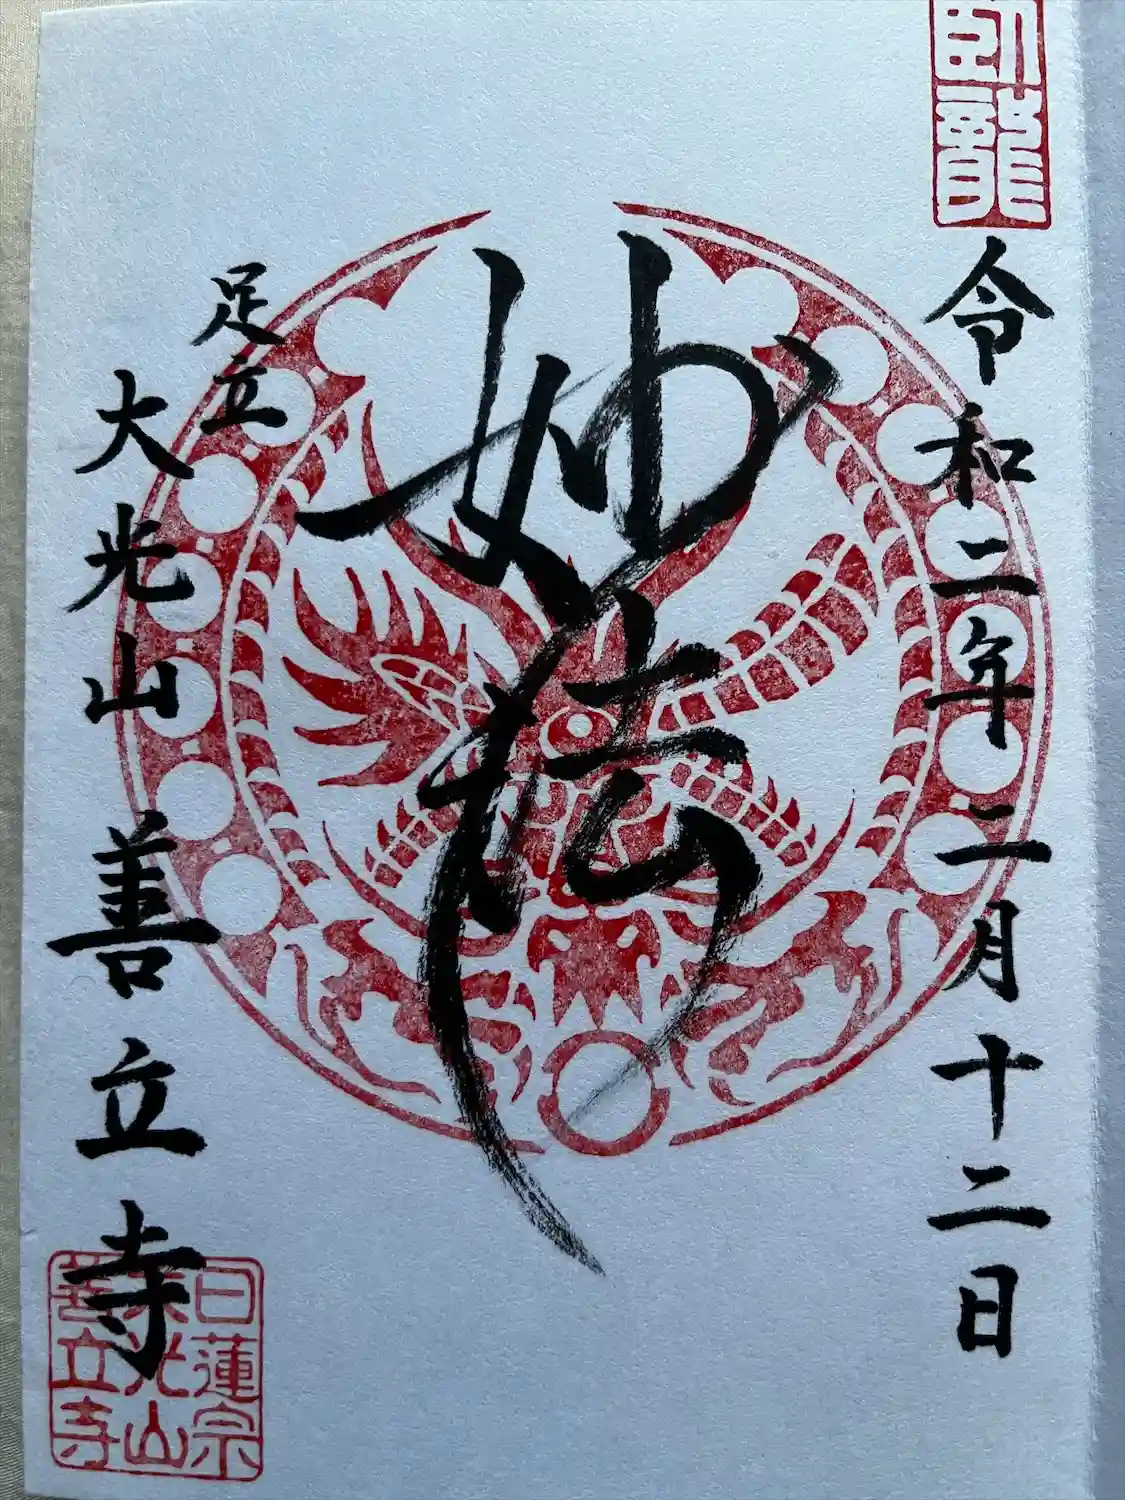 師龍
令和二年二月十二日
妙法
足立
大光山 善立寺
日蓮宗
大光山
善立寺